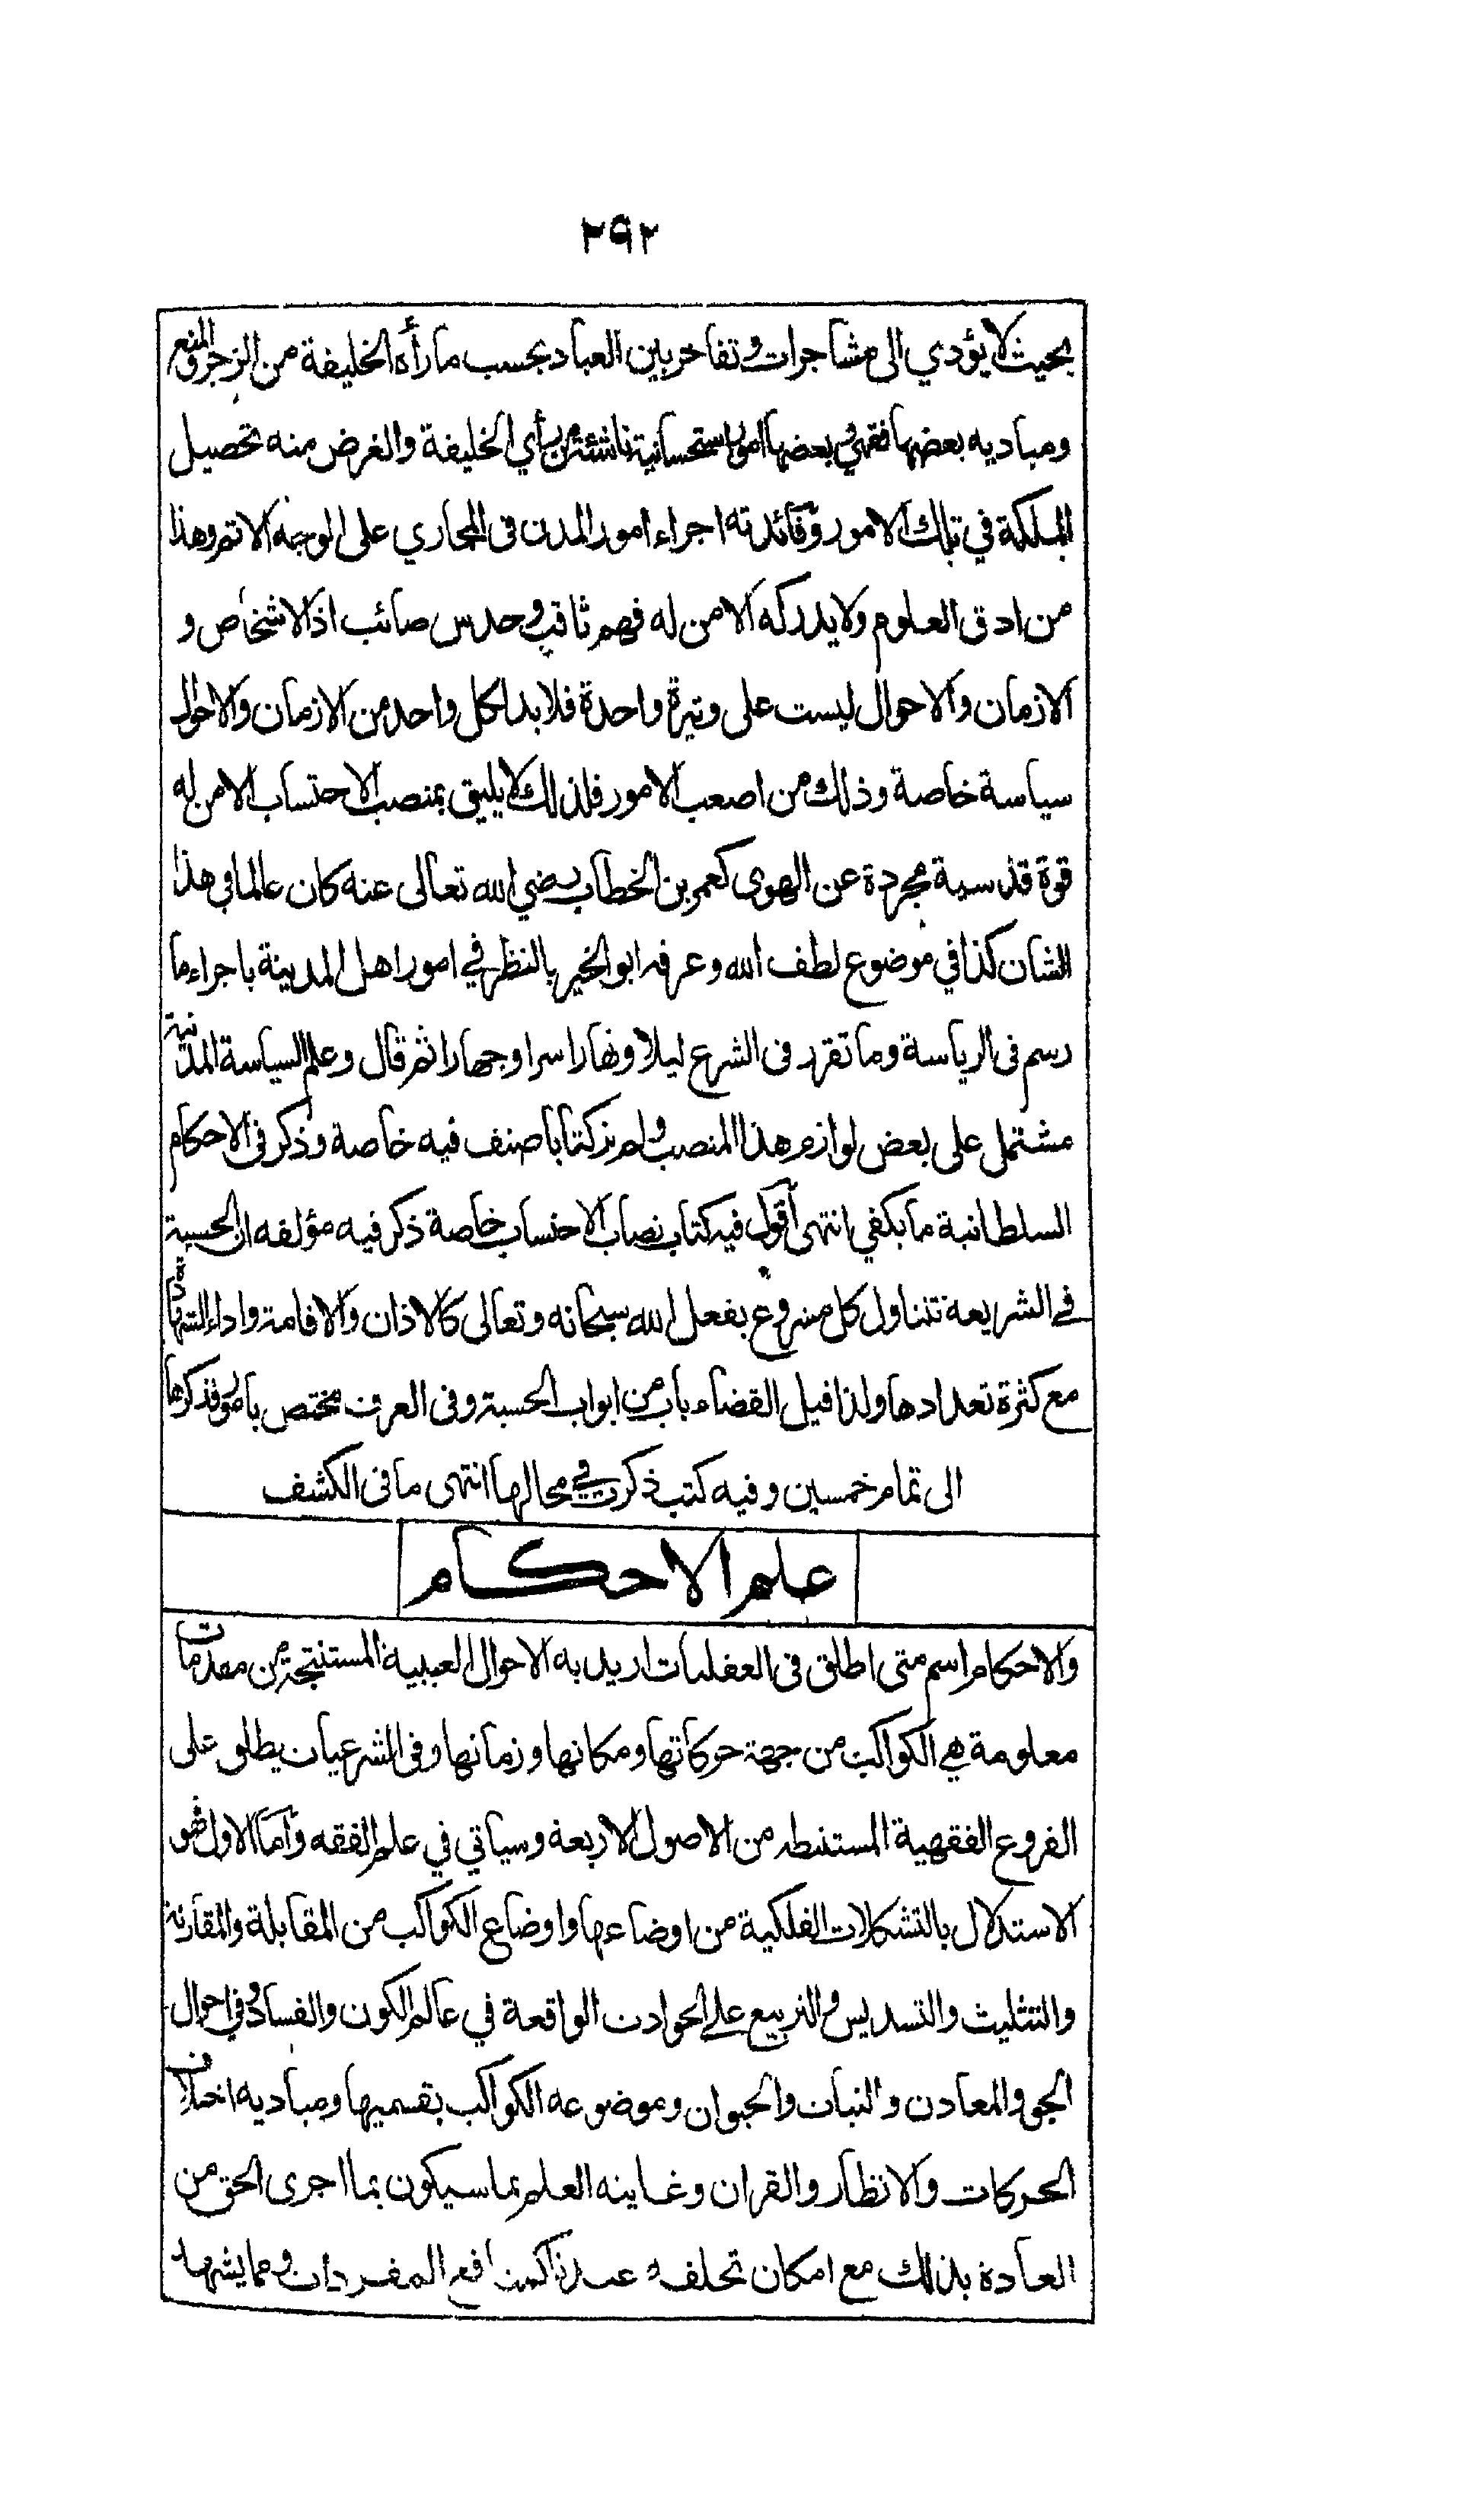 ٢٩٢
بحيث لا يؤدي الى مشاجرات وتفاخر بين العباد بحسب ما رأه الخليفة من الزجر والمنع
ومباديه بعضها فقهي وبعضها امور استحسانية ناشئة من رأي الخليفة والغرض منه تحصيل
الملكة في تلك الامور وفائدته اجراء امور المدن في المجاري على الوجه الاتم وهذا
من ادق العلوم ولا يدركه الا من له فهم ثاقب وحدس صائب اذ الاشخاص و
الازمان والاحوال ليست على وتيرة واحدة فلا بد لكل واحد من الازمان والاحوال
سياسة خاصة وذلك من اصعب الامور فلذلك لا يليق بمنصب الاحتساب الا من له
قوة قدسية مجردة عن الهوى كعمر بن الخطاب رضي الله تعالى عنه كان عالما في هذا
الشان كذا في موضوع لطف الله وعرفه ابو الخير بالنظر في امور اهل المدينة باجراء ما
رسم في الرياسة وما تقرر في الشرع ليلا ونهارا سرا وجهارا ثم قال وعلم السياسة المدنية
مشتمل على بعض لوازم هذا المنصب ولم نر كتابا صنف فيه خاصة وذكر في الاحكام
السلطانية ما يكفي انتهى أقول فيه كتاب نصاب الاحتساب خاصة ذكر فيه مؤلفه ان الحسبة
في الشريعة تتناول كل مشروع يفعل لله سبحانه وتعالى كالاذان والاقامة واداء الشهادة
مع كثرة تعدادها ولذا قيل القضاء باب من ابواب الحسبة وفي العرف مختص بامور فذكرها
الى تمام خمسين وفيه كتب ذكرت في محالها انتهى ما في الكشف
علم الاحكام
والاحكام اسم متى اطلق في العقليات اريد به الاحوال الغيبية المستنتجة من مقدمات
معلومة هي الكواكب من جهة حركاتها ومكانها وزمانها وفي الشرعيات يطلق على
الفروع الفقهية المستنبطه من الاصول الاربعة وسياتي في علم الفقه وأما الاول فهو
الاستدلال بالتشكلات الفلكية من اوضاعها واوضاع الكواكب من المقابلة والمقارنة
والتثليث والتسديس والتربيع على الحوادث الواقعة في عالم الكون والفساد وفي احوال
الجو والمعادن والنبات والحيوان وموضوعه الكواكب بقسميها ومباديه اختلاف
الحركات والانظار والقران وغايته العلم بما سيكون بما اجرى الحق من
العادة بذلك مع امكان تخلفه عندنا كمنافع المفردات ومما يشهد